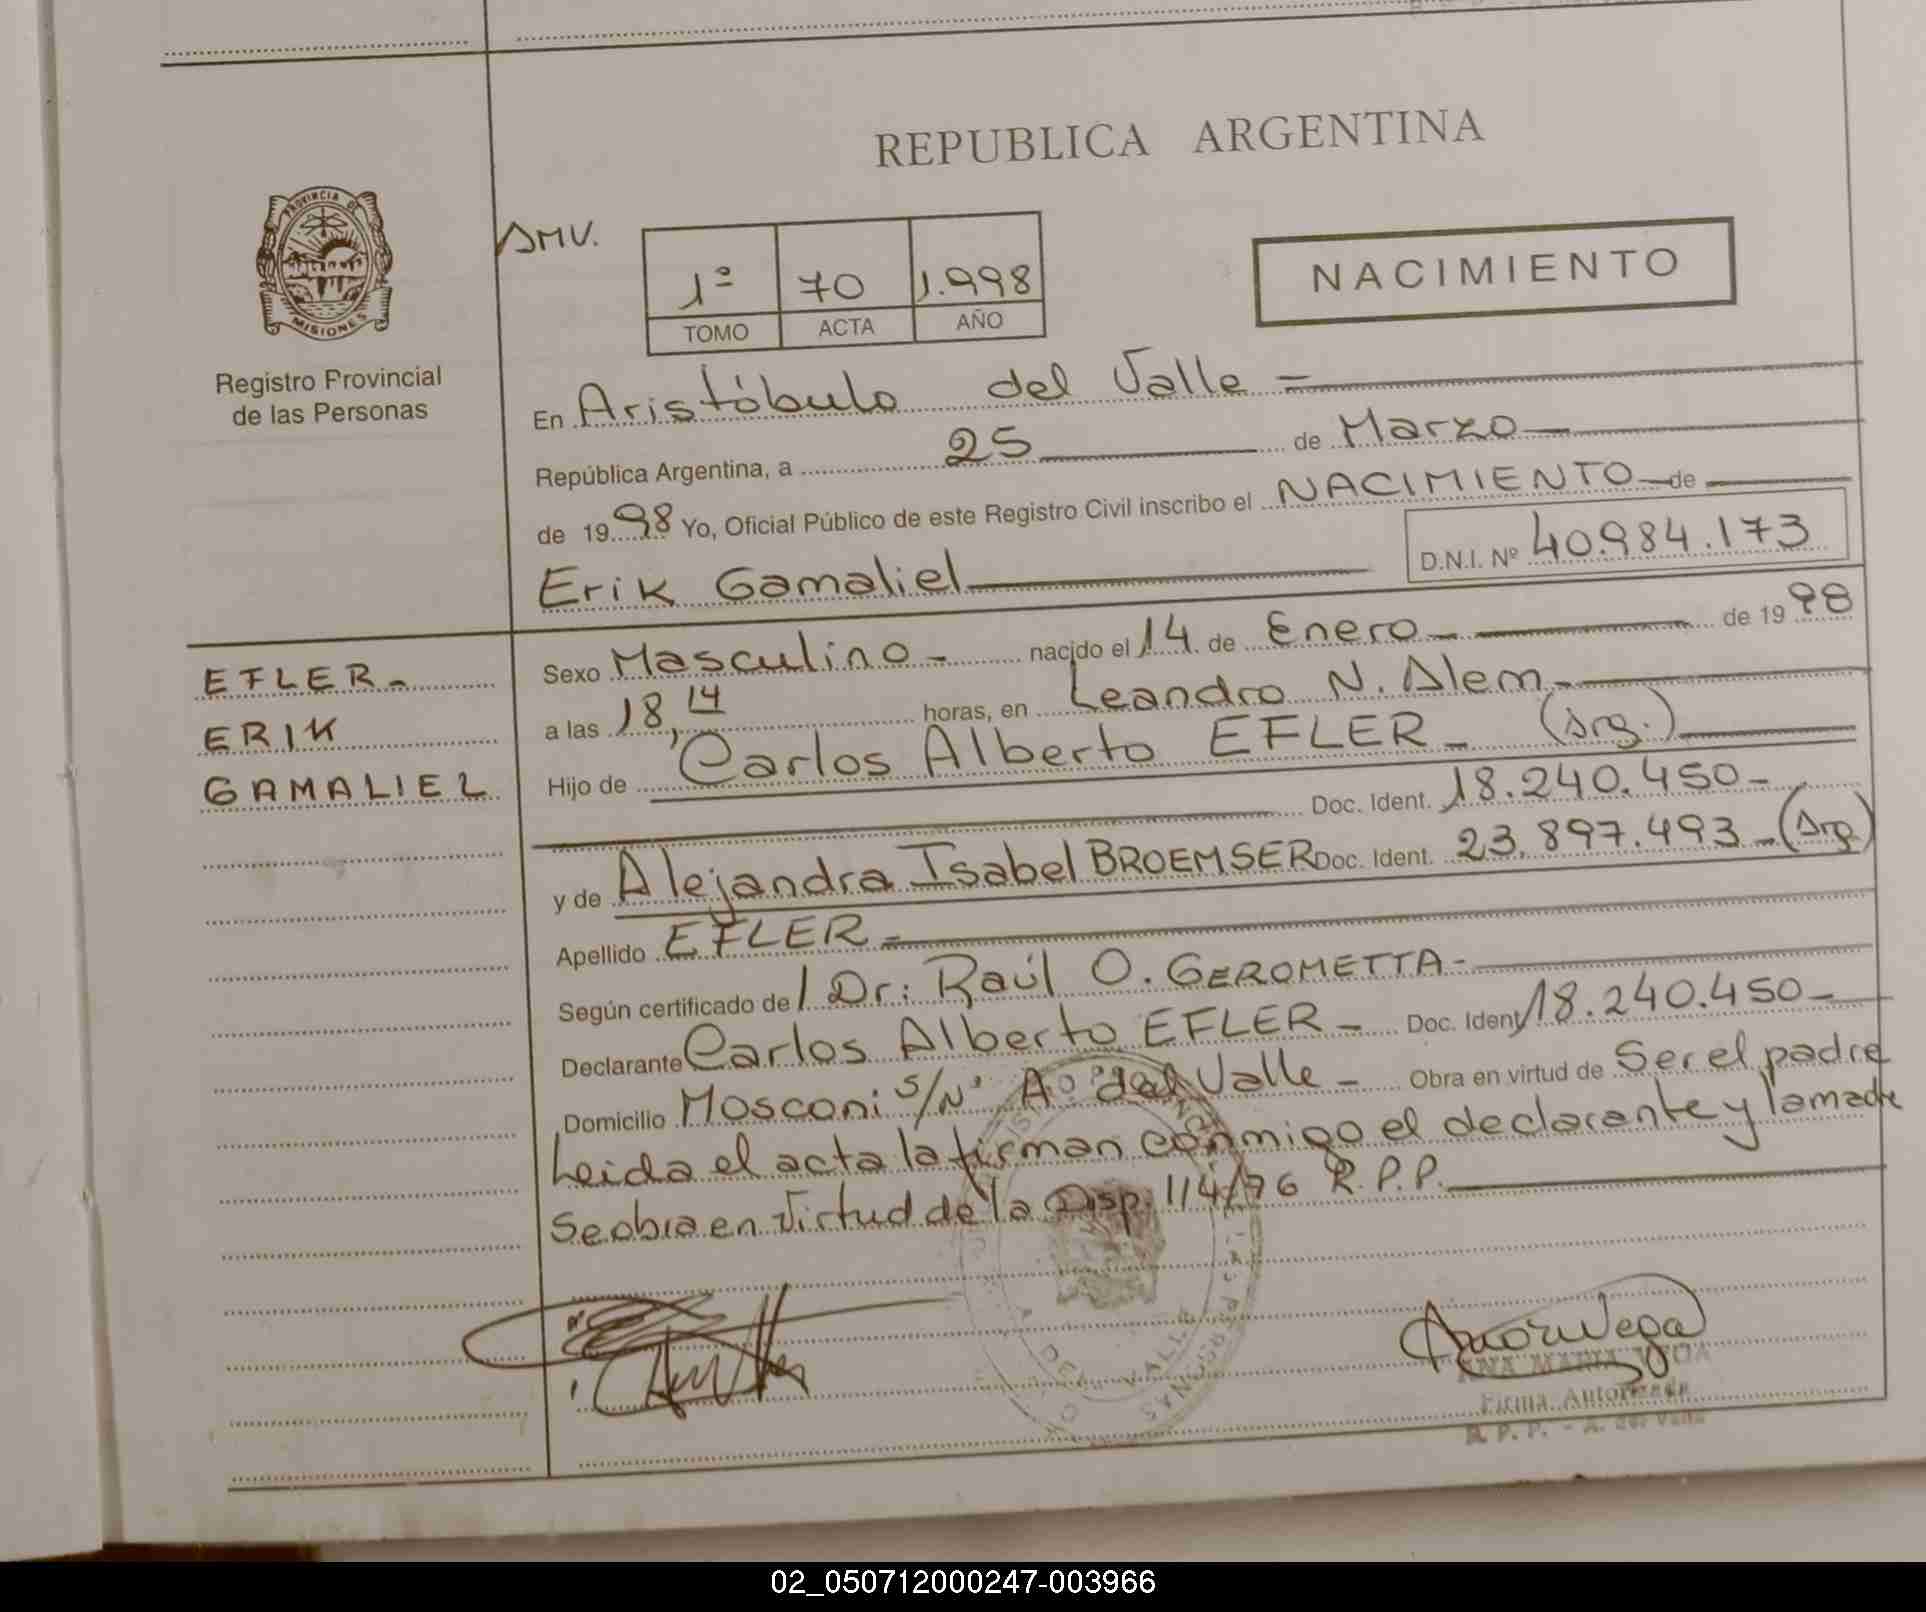 REPUBLICA ARGENTINA
PROVINCIA DE
MISIONES
Registro Provincial
de las Personas
AMV.
1º 70 1.998
TOMO ACTA AÑO
NACIMIENTO
En Aristóbulo del Valle -
República Argentina, a 25 de Marzo
de 1998 Yo, Oficial Público de este Registro Civil inscribo el NACIMIENTO de
D.N.I. Nº 40.984.173
Erik Gamaliel
EFLER -
ERIK
GAMALIEL
Sexo Masculino - nacido el 14 de Enero - de 1998
a las 18,14 horas, en Leandro N. Alem -
Hijo de Carlos Alberto EFLER - (Arg.)
Doc. Ident. 18.240.450 -
y de Alejandra Isabel BROEMSER Doc. Ident. 23.897.493 - (Arg)
Apellido EFLER -
Según certificado de Dr: Raúl O. GEROMETTA -
Declarante Carlos Alberto EFLER - Doc. Ident 18.240.450 -
Domicilio Mosconi S/Nº Aº del Valle - Obra en virtud de Ser el padre
Leida el acta la firman conmigo el declarante y la madre
Se obra en virtud de la Disp. 114/96 R.P.P.
DEL VALLE
ANA MARIA VEGA
Firma Autorizada
R. P. P. - A. del Valle
02_050712000247-003966